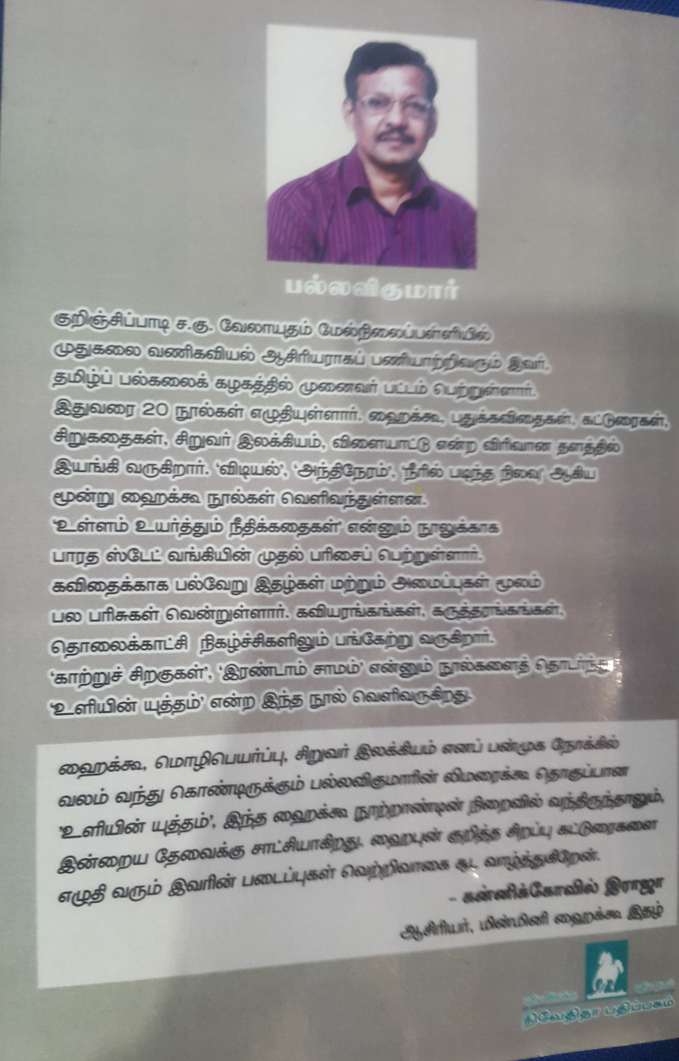 பல்லவிகுமார்
குறிஞ்சிப்பாடி ச.கு. வேலாயுதம் மேல்நிலைப்பள்ளியில்
முதுகலை வணிகவியல் ஆசிரியராகப் பணியாற்றிவரும் இவர்,
தமிழ்ப் பல்கலைக் கழகத்தில் முனைவர் பட்டம் பெற்றுள்ளார்.
இதுவரை 20 நூல்கள் எழுதியுள்ளார். ஹைக்கூ, புதுக்கவிதைகள், கட்டுரைகள்,
சிறுகதைகள், சிறுவர் இலக்கியம், விளையாட்டு என்ற விரிவான தளத்தில்
இயங்கி வருகிறார். 'விடியல்', 'அந்திநேரம்', 'நீரில் படிந்த நிலவு' ஆகிய
மூன்று ஹைக்கூ நூல்கள் வெளிவந்துள்ளன.
'உள்ளம் உயர்த்தும் நீதிக்கதைகள்' என்னும் நூலுக்காக
பாரத ஸ்டேட் வங்கியின் முதல் பரிசைப் பெற்றுள்ளார்.
கவிதைக்காக பல்வேறு இதழ்கள் மற்றும் அமைப்புகள் மூலம்
பல பரிசுகள் வென்றுள்ளார். கவியரங்கங்கள், கருத்தரங்கங்கள்,
தொலைக்காட்சி நிகழ்ச்சிகளிலும் பங்கேற்று வருகிறார்.
'காற்றுச் சிறகுகள்', 'இரண்டாம் சாமம்' என்னும் நூல்களைத் தொடர்ந்து
'உளியின் யுத்தம்' என்ற இந்த நூல் வெளிவருகிறது.
ஹைக்கூ, மொழிபெயர்ப்பு, சிறுவர் இலக்கியம் எனப் பன்முக நோக்கில்
வலம் வந்து கொண்டிருக்கும் பல்லவிகுமாரின் லிமரைக்கூ தொகுப்பான
'உளியின் யுத்தம்', இந்த ஹைக்கூ நூற்றாண்டின் நிறைவில் வந்திருந்தாலும்,
இன்றைய தேவைக்கு சாட்சியாகிறது. ஹைபுன் குறித்த சிறப்பு கட்டுரைகளை
எழுதி வரும் இவரின் படைப்புகள் வெற்றிவாகை சூட வாழ்த்துகிறேன்.
- கன்னிக்கோவில் இராஜா
ஆசிரியர், மின்மினி ஹைக்கூ இதழ்
நிவேதிதா பதிப்பகம்